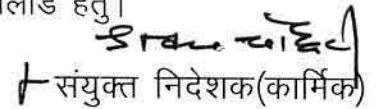 लोड हेतु।
संयुक्त निदेशक(कार्मिक)